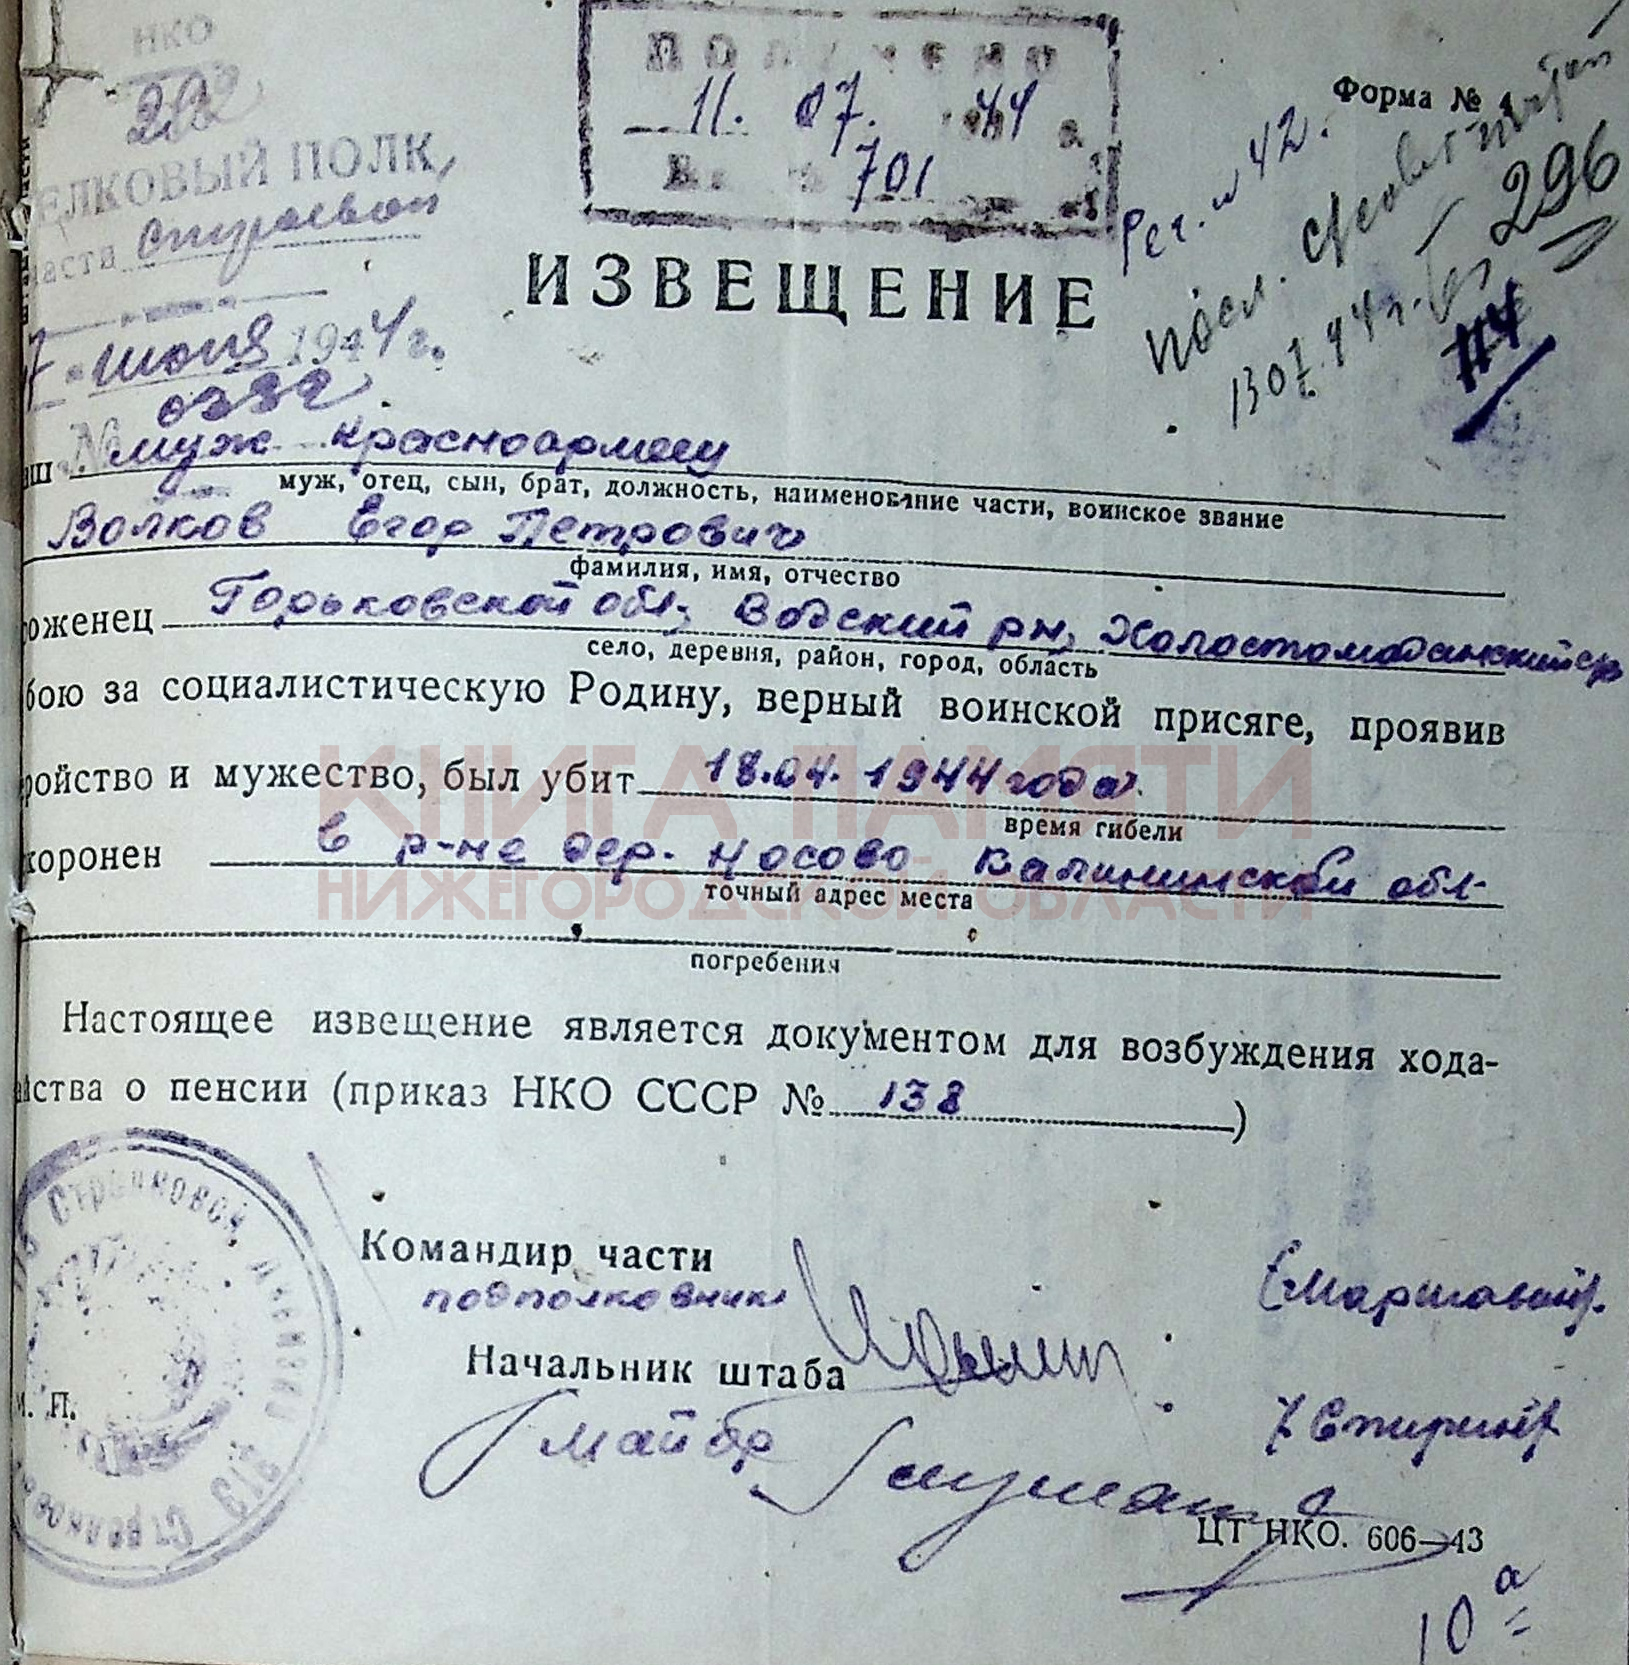 НКО
202
ЕЛКОВЫЙ ПОЛК
части строевой
7 " июня 1944 г.
№ 0792
ПОЛУЧЕНО
11. 07. 44 г.
701
Форма № 4
Рег. № 42.
296
13 07. 44 г.
114
ИЗВЕЩЕНИЕ
аш муж красноармеец
муж, отец, сын, брат, должность, наименование части, воинское звание
Волков Егор Петрович
фамилия, имя, отчество
оженец Горьковской обл, Водский рн, Холостомайданский с/с
село, деревня, район, город, область
бою за социалистическую Родину, верный воинской присяге, проявив
ройство и мужество, был убит 18.04. 1944 года
время гибели
хоронен в р-не дер. Носово Калининской обл.
точный адрес места
погребения
КНИГА ПАМЯТИ
НИЖЕГОРОДСКОЙ ОБЛАСТИ
Настоящее извещение является документом для возбуждения хода-
йства о пенсии (приказ НКО СССР № 138 )
Командир части
подполковник
Начальник штаба
майор
М. П.
Стрелковой
ЦТ НКО. 606—43
10 а